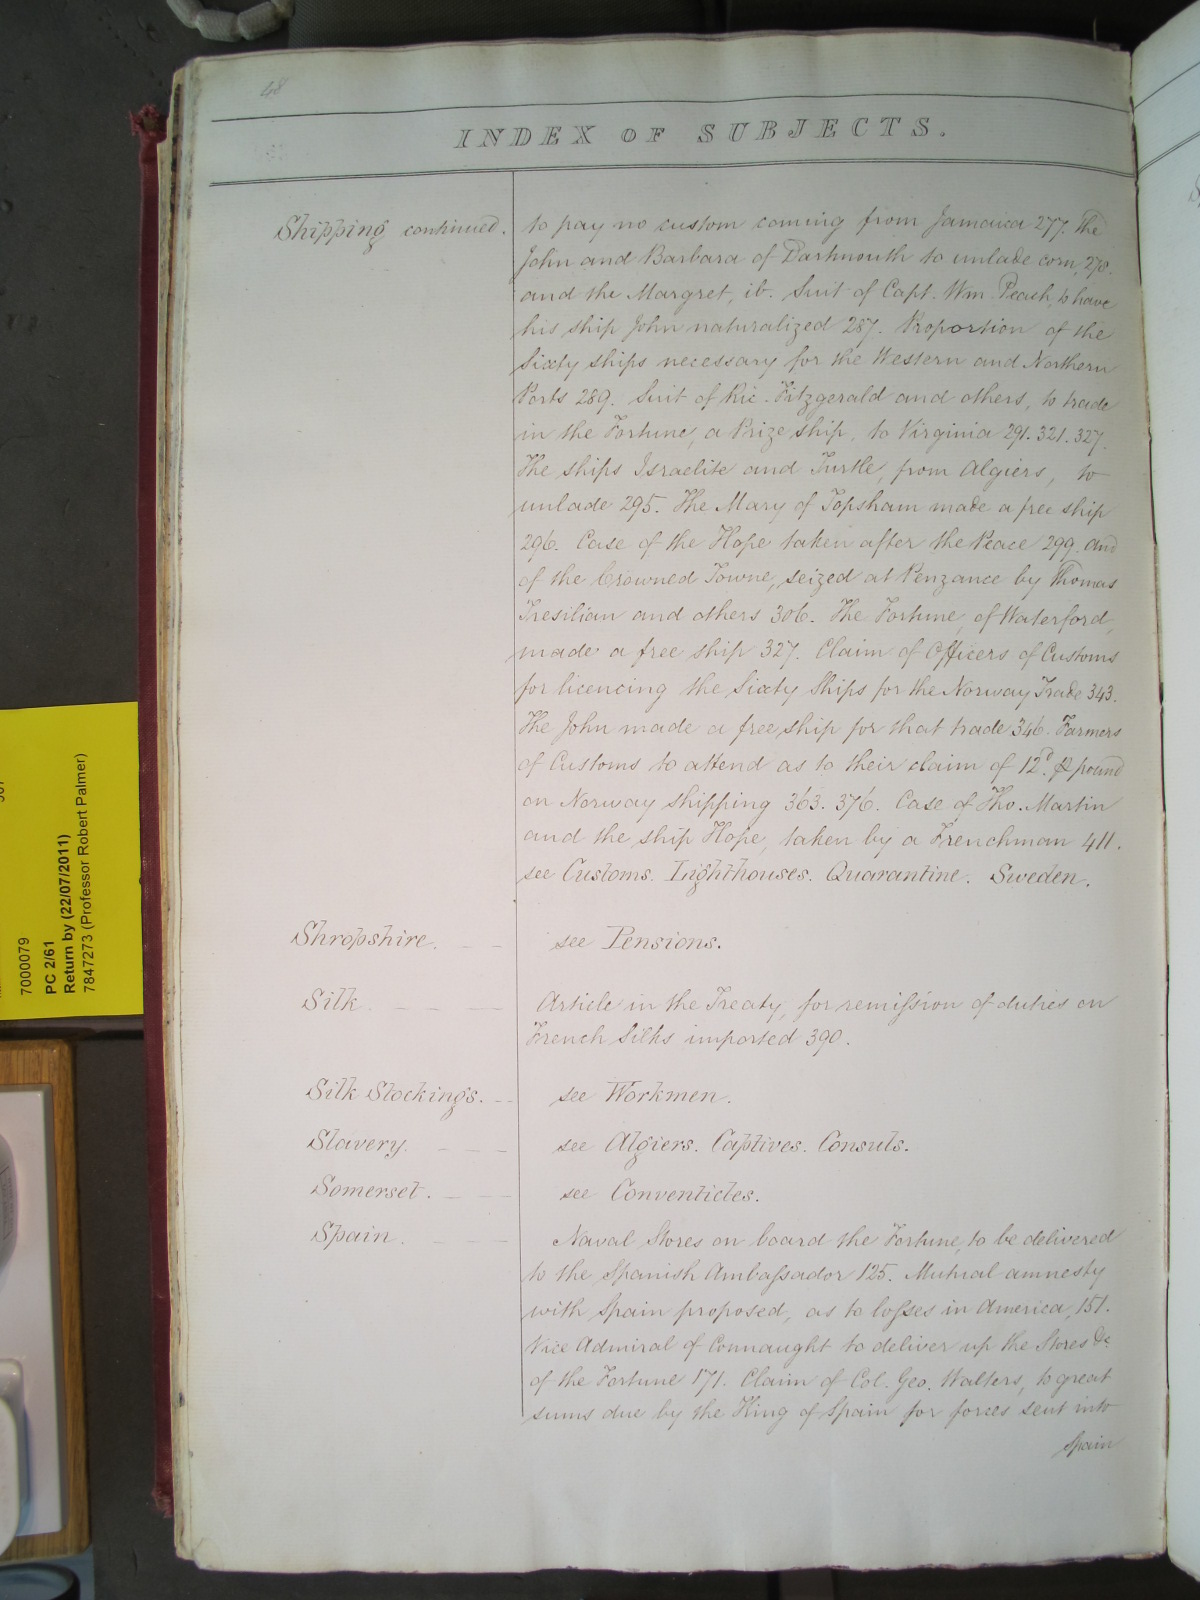 48
INDEX OF SUBJECTS.
Shipping continued.
to pay no custom coming from Jamaica 277. The
John and Barbara of Dartmouth to unlade corn, 278.
and the Margret, ib. Suit of Capt. Wm. Peach, to have
his ship John naturalized 287. Proportion of the
Sixty ships necessary for the Western and Northern
Ports 289. Suit of Ric. Fitzgerald and others, to trade
in the Fortune, a Prize ship, to Virginia 291. 321. 327.
The ships Israelite and Turtle, from Algiers, to
unlade 295. The Mary of Topsham made a free ship
296. Case of the Hope taken after the Peace 299. and
of the Crowned Towne, seized at Penzance by Thomas
Tresilian and others 306. The Fortune, of Waterford,
made a free ship 327. Claim of Officers of Customs
for licencing the Sixty Ships for the Norway Trade 343.
The John made a free ship for that trade 346. Farmers
of Customs to attend as to their claim of 12d. ⅌ pound
on Norway shipping 363. 376. Case of Tho. Martin
and the ship Hope, taken by a Frenchman 411.
see Customs. Lighthouses. Quarantine. Sweden.
Shropshire. see Pensions.
Silk. Article in the Treaty, for remission of duties on
French Silks imported 390.
Silk Stockings. see Workmen.
Slavery. see Algiers. Captives. Consuls.
Somerset. see Conventicles.
Spain. Naval Stores on board the Fortune, to be delivered
to the Spanish Ambassador 125. Mutual amnesty
with Spain proposed, as to losses in America, 151.
Vice Admiral of Connaught to deliver up the Stores &c
of the Fortune 171. Claim of Col. Geo. Walters, to great
sums due by the King of Spain for forces sent into
Spain
7000079
PC 2/61
Return by (22/07/2011)
7847273 (Professor Robert Palmer)